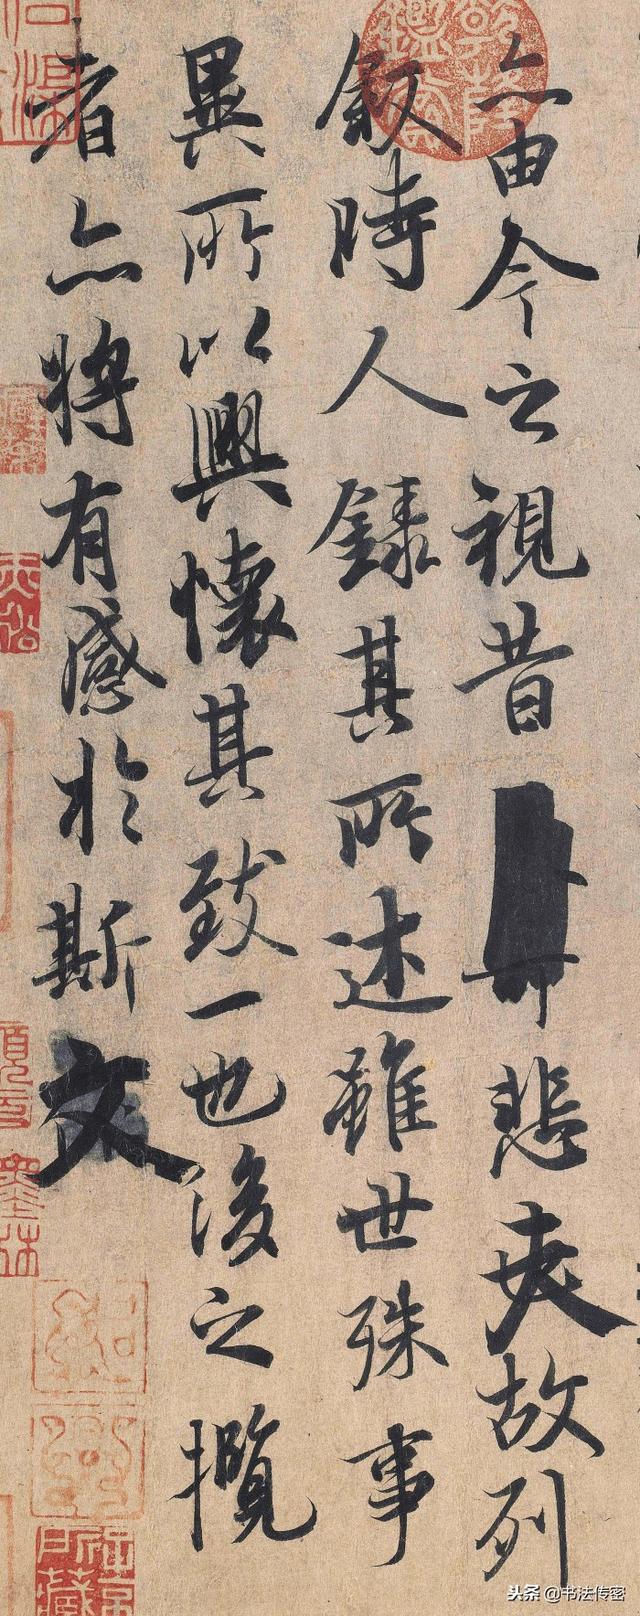 亦由今之視昔悲夫故列
叙時人錄其所述雖世殊事
異所以興懷其致一也後之攬
者亦將有感於斯文
头条@书法传密